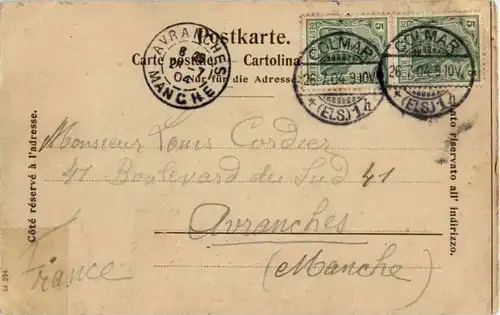 Postkarte.
Carte postale Cartolina
Nur für die Adresse.
AVRANCHES
8
04
MANCHE
COLMAR
26.7.04.9-10V.
*(ELS.)1h
COLMAR
26.7.04.9-10V.
*(ELS.)1h
5
5
Côté réservé à l'adresse.
riservato all' indirizzo.
Monsieur Louis Cordier
41 Boulevard du Sud 41
Avranches
(Manche)
France